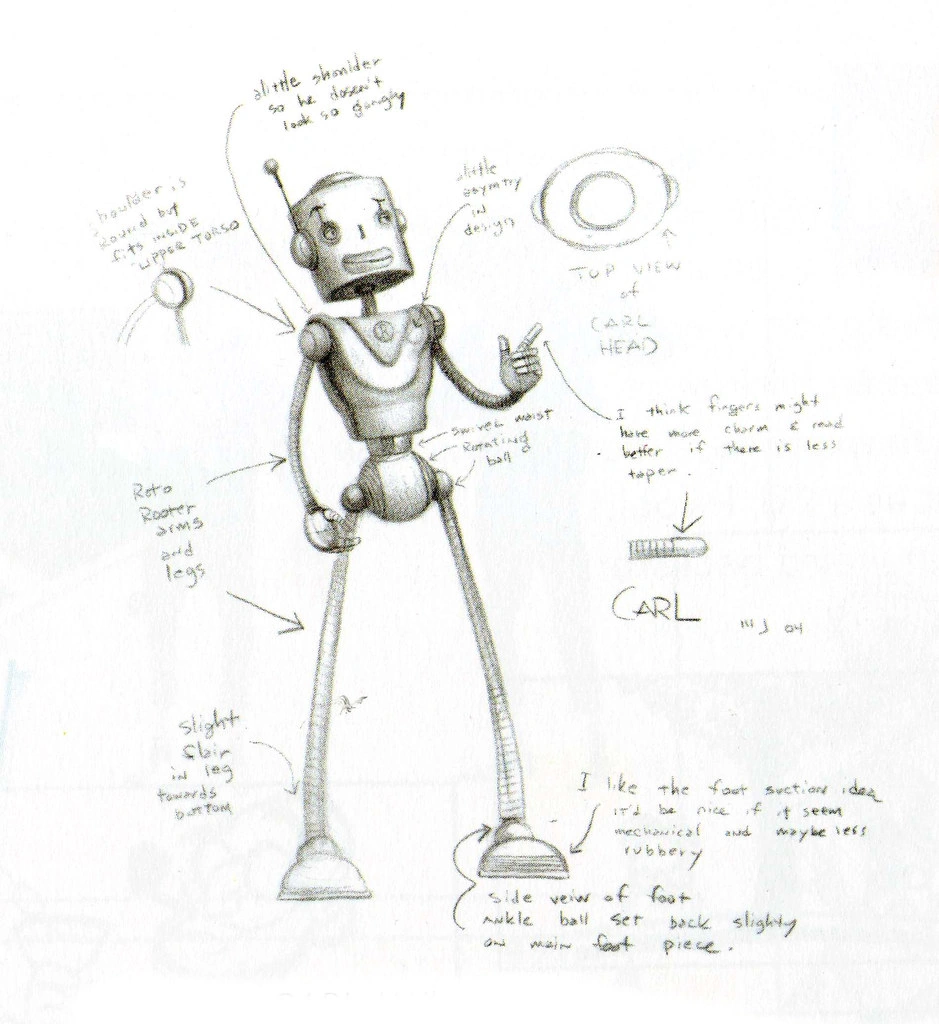 alittle shoulder
so he dosen't
look so gangly
alittle
asymtry
in
design
houlder is
Round but
fits inside
upper Torso
TOP VIEW
of
CARL
HEAD
R
I think fingers might
have more charm & read
better if there is less
taper.
swivel waist
Rotating
ball
Roto
Rooter
arms
and
legs
CARL
04
slight
flair
in leg
towards
bottom
I like the foot suction idea
it'd be nice if it seem
mechanical and maybe less
rubbery
side veiw of foot
ankle ball set back slighty
on main foot piece.